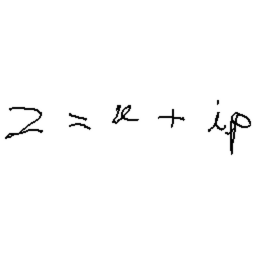 z = x + ip